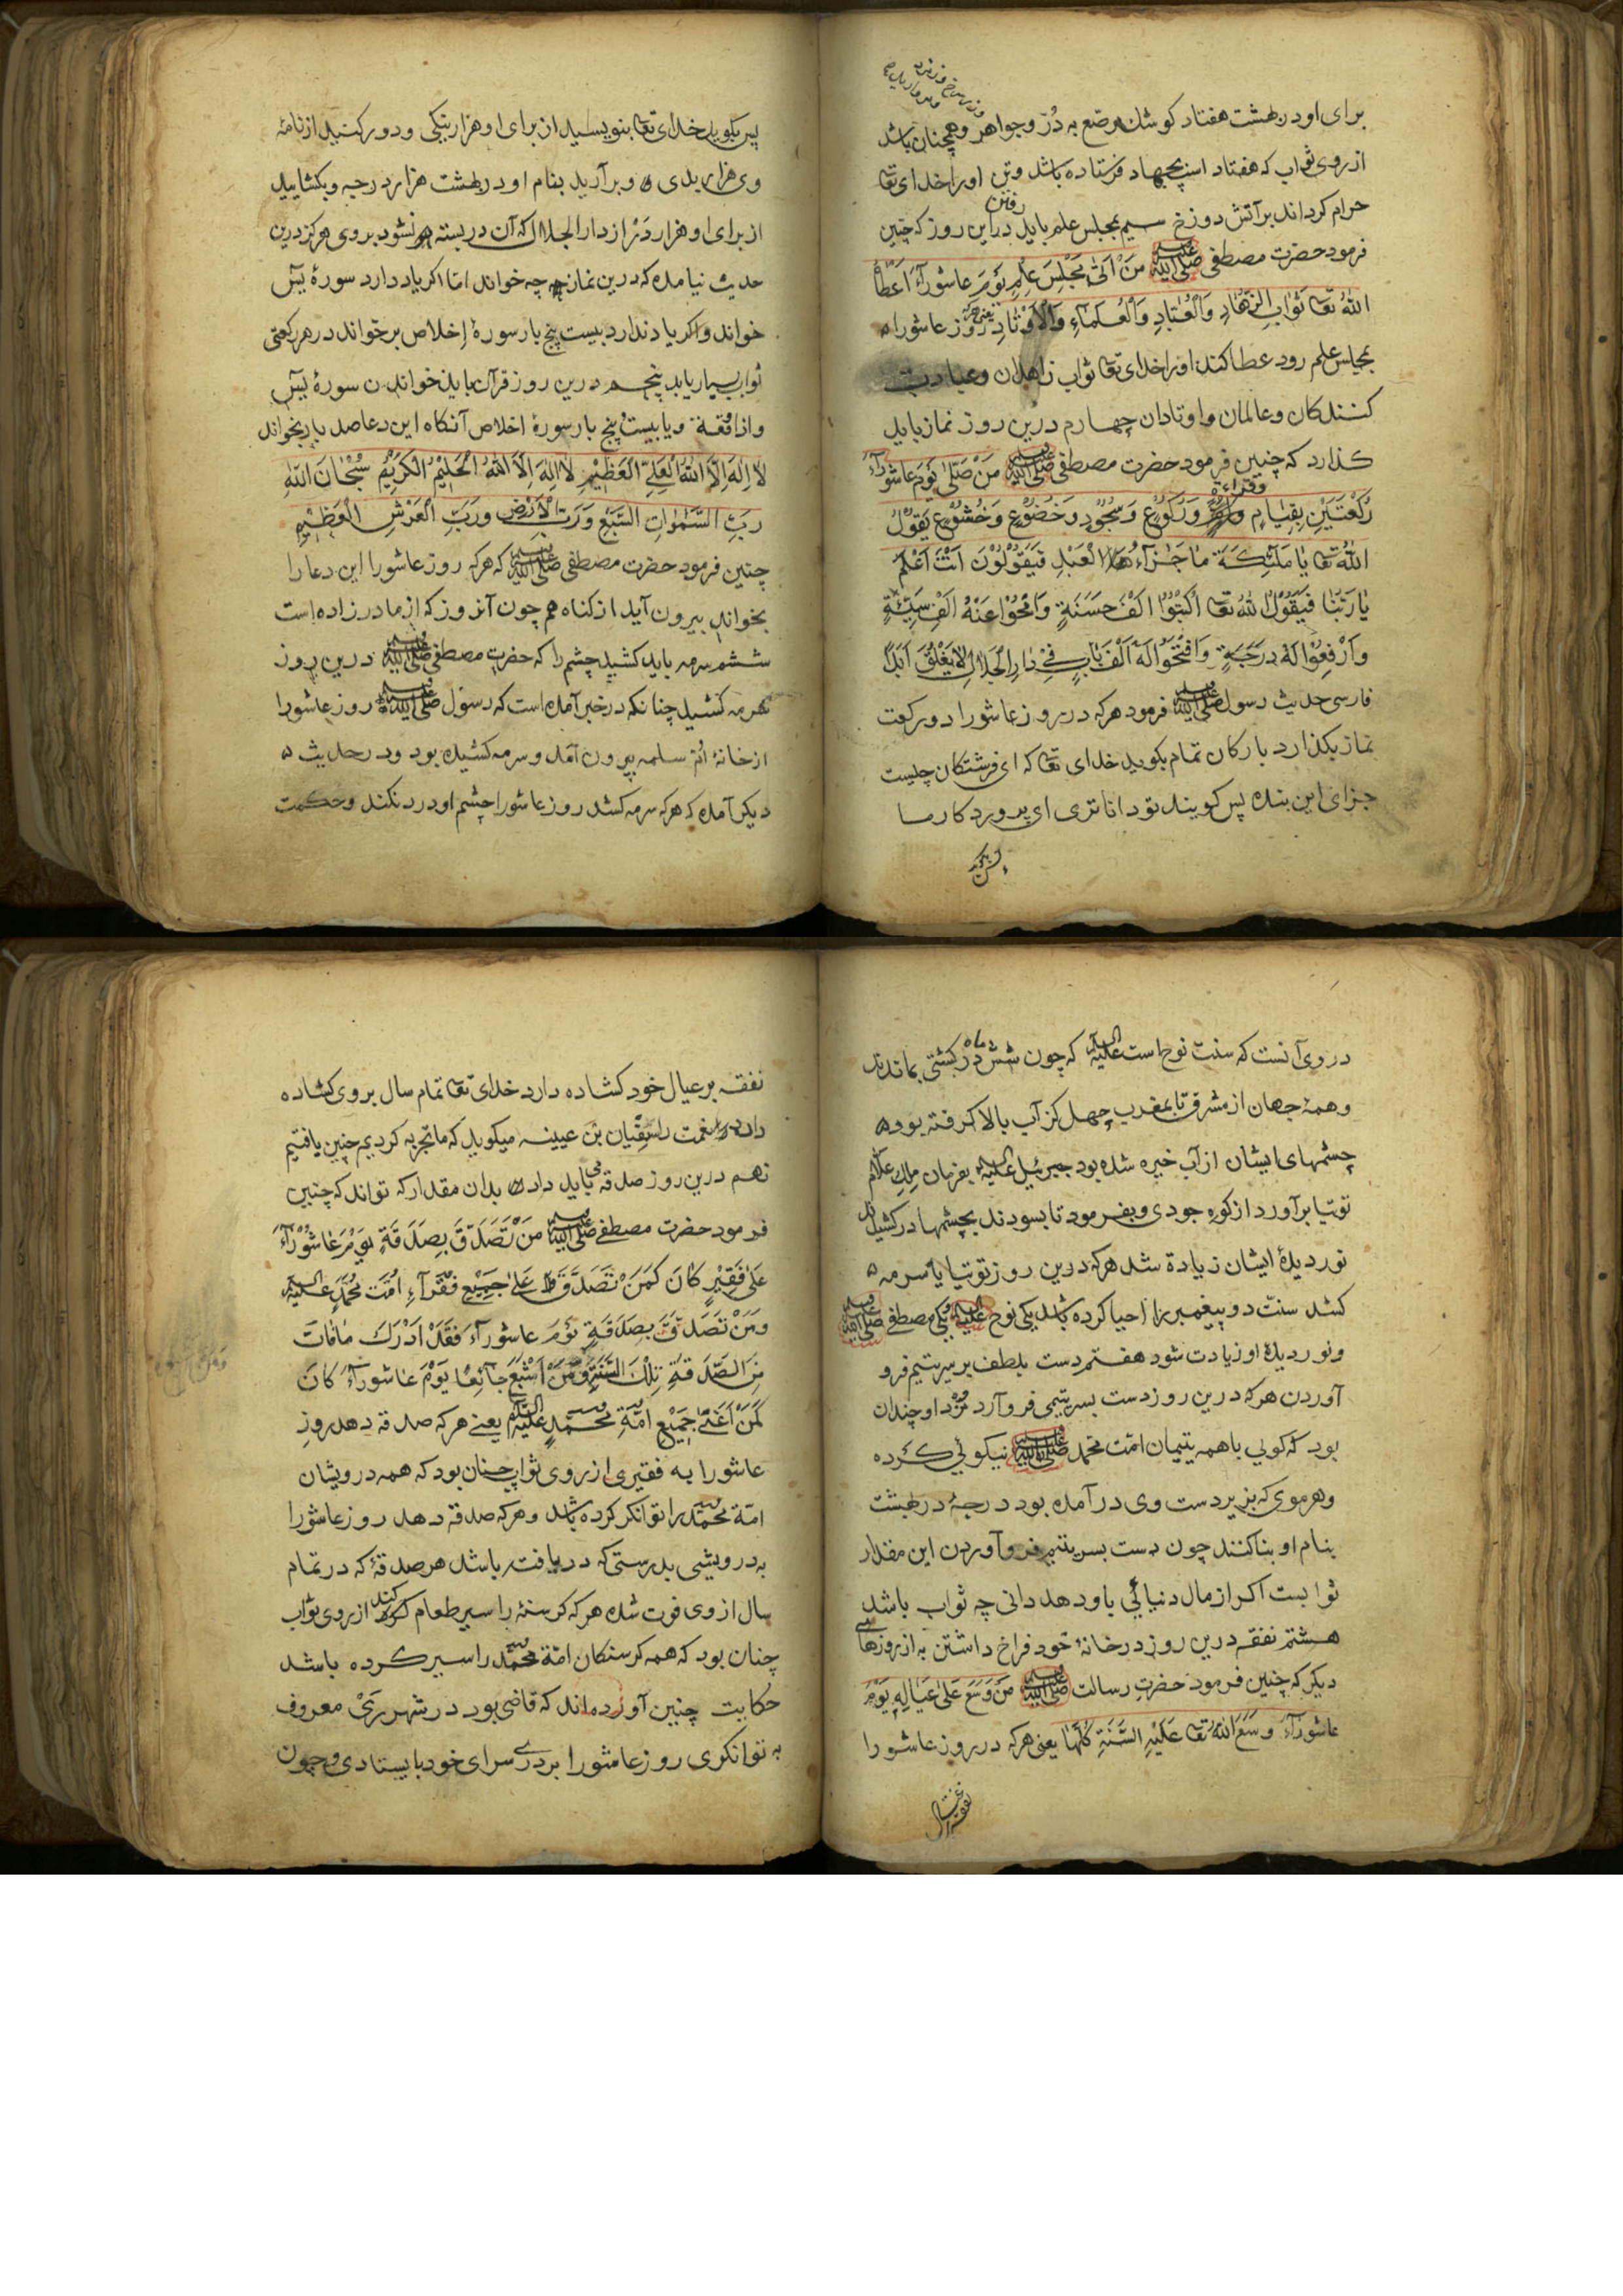 برای او در بهشت هفتاد کوشک مرصّع به دُرّ و جواهر و همچنان باشد
از روی ثواب که هفتاد اسپ بجهاد فرستاده باشد و تن او را خدای تعا
حرام کرداند بر آتش دوزخ سیم بمجلس علم باید رفتن در این روز که چنین
فرمود حضرت مصطفی صلی الله علیه وسلم مَنْ اَتیٰ مَجْلِسَ عِلْمٍ یَوْمَ عاشُورآءَ اَعْطاهُ
اللهُ تعا ثَوابَ الزُّهّادِ وَالْعُبّادِ وَالْعُلَمآءِ وَالْاَوْتادِ یعنی هرکه روز عاشورا
بمجلس علم رود عطا کند او را خدای تعا ثواب زاهدان و عبادت
کنندکان و عالمان و اوتادان چهارم درین روز نماز باید
کذارد که چنین فرمود حضرت مصطفی صلی الله علیه وسلم مَنْ صَلّیٰ یَوْمَ عاشورآءَ
رَکْعَتَیْنِ بِقِیٰامٍ وقراءة وَرُکُوعٍ وَسُجُوْدٍ وَخُضُوْعٍ وَخُشُوْعٍ یَقُوْلُ
اللهُ تعا یٰا مَلٰئِکَة مٰا جَزآءُ هذا الْعَبْدِ فَیَقُوْلُوْنَ اَنْتَ اَعْلَمُ
یٰا رَبَّنا فَیَقُوْلُ اللهُ تعا اُکْتُبُوْا اَلْفَ حَسَنَةٍ وَامْحُوْا عَنْهُ اَلْفَ سَیِّئَةٍ
وَارْفِعُوْا لَهُ دَرَجَةٍ وَافْتَحُوْا لَهُ اَلْفَ بٰابٍ فِیْ دٰارِ الْجَلالِ لا یَغْلَقُ اَبَداً
فارسی حدیث رسول صلی الله علیه وسلم فرمود هرکه در روز عاشورا دو رکعت
نماز بکذارد با رکان تمام بکوید خدای تعا که ای فرشتکان چیست
جزای این بنده پس کویند تو داناتری ای پروردکار ما
پس بکوید خدای تعا بنویسید از برای او هزار نیکی و دور کنید از نامهٔ
وی هزار بدی و بر آرید بنام او در بهشت هزار درجه و بکشایید
از برای او هزار دَر از دار الجلال که آن در بسته نشود بر وی هرکز درین
حدیث نیامده که درین نماز چه خواند امّا اکر یاد دارد سورهٔ یٓس
خواند و اکر یاد ندارد بیست پنج بار سورهٔ اِخلاص برخواند در هر رکعتی
ثواب بسیار یابد پنجم درین روز قرآن باید خواندن سورهٔ یٓس
واذا وَقَعَة و یا بیست پنج بار سورهٔ اخلاص آنکاه این دعا صد بار بخواند
لٰا اِلٰهَ اِلَّا اللهُ الْعَلِیُّ الْعَظِیْمِ لٰا اِلٰهَ اِلَّا اللهُ الْحَلِیْمُ الْکَرِیْمُ سُبْحٰانَ اللهِ
رَبِّ السَّمٰوٰاتِ السَّبْعِ وَرَبِّ الْاَرْضِ وَرَبِّ الْعَرْشِ الْعَظِیْمِ
چنین فرمود حضرت مصطفی صلی الله علیه وسلم که هرکه روز عاشورا این دعا را
بخواند بیرون آید از کناه هم چون آنروز که از مادر زاده است
ششم سرمه باید کشید چشم را که حضرت مصطفی صلی الله علیه وسلم درین روز
سرمه کشید چنانکه در خبر آمده است که رسول صلی الله علیه وسلم روز عاشورا
از خانهٔ امّ سلمه بیرون آمد و سرمه کشیده بود و در حدیث
دیکر آمده که هرکه سرمه کشد روز عاشورا چشم او درد نکند و حکمت
در وی آنست که سنت نوح است علیه السلام که چون شش ماه در کشتی بماندند
و همهٔ جهان از مشرق تا بمغرب چهل کز آب بالا کرفته بود
چشمهای ایشان از آب خیره شده بود جبرئیل علیه السلام بفرمان ملک علام
توتیا برآورد از کوه جودی و بفرمود تا بسودند بچشمها در کشیدند
نور دیدهٔ ایشان زیادة شد هرکه درین روز توتیا یا سرمه
کشد سنّت دو پیغمبر را احیا کرده باشد یکی نوح علیه السلام و یکی مصطفی صلی الله علیه وسلم
و نور دیدهٔ او زیادت شود هفتم دست بلطف بر سر یتیم فرو
آوردن هرکه درین روز دست بسر یتیمی فرو آرد مزد او چندان
بود که کویی با همه یتیمان امّت محمّد صلی الله علیه وسلم نیکوئی کرده
و هر موی که بزیر دست وی در آمده بود درجهٔ در بهشت
بنام او بنا کنند چون دست بسر یتیم فرو آوردن این مقدار
ثوابست اکر از مال دنیائی باو دهد دانی چه ثواب باشد
هشتم نفقه درین روز در خانهٔ خود فراخ داشتن به از روزهای
دیکر که چنین فرمود حضرت رسالت صلی الله علیه وسلم مَنْ وَسَّعَ عَلیٰ عَیٰالِهِ یَوْمَ
عاشورآءَ وَسَّعَ اللهُ تعا عَلَیْهِ السَّنَةِ کُلَّهٰا یعنی هرکه در روز عاشورا
نفقه بر عیال خود کشاده دارد خدای تعا تمام سال بر وی کشاده
دارد نعمت را سفیان بن عیینه میکوید که ما تجربه کردیم چنین یافتیم
نهم درین روز صدقه می باید داد بدان مقدار که تواند که چنین
فرمود حضرت مصطفی صلی الله علیه وسلم مَنْ تَصَدَّقَ بِصَدَقَةٍ یَوْمَ عٰاشُوْرآءَ
عَلیٰ فَقِیْرٍ کٰانَ کَمَنْ تَصَدَّقَ عَلیٰ جَمِیْعِ فُقَرآءِ اُمَّت مُحَمَّدٍ علیه السلام
وَمَنْ تَصَدَّقَ بِصَدَقَةٍ یَوْمَ عاشورآءَ فَقَدْ اَدْرَکَ مٰا فٰاتَ
مِنَ الصَّدَقَةِ تِلْکَ السَّنَةِ وَمَنْ اَشْبَعَ جٰائِعًا یَوْمَ عٰاشورآءَ کٰانَ
کَمَنْ اَغْنیٰ جَمِیْعِ امَّةِ مُحَمَّدٍ علیه السلام یعنی هرکه صدقه دهد روز
عاشورا به فقیری از روی ثواب چنان بود که همه درویشان
امّة محمّد را توانکر کرده باشد و هرکه صدقه دهد روز عاشورا
به درویشی بدرستی که در یافته باشد هر صدقهٔ که در تمام
سال از وی فوت شده هرکه کرسنهٔ را سیر طعام کند از روی ثواب
چنان بود که همه کرسنکان امّة محمّد را سیر کرده باشد
حکایت چنین آورده‌اند که قاضی بود در شهر رَیْ معروف
به توانکری روز عاشورا بر در سرای خود بایستادی و چون